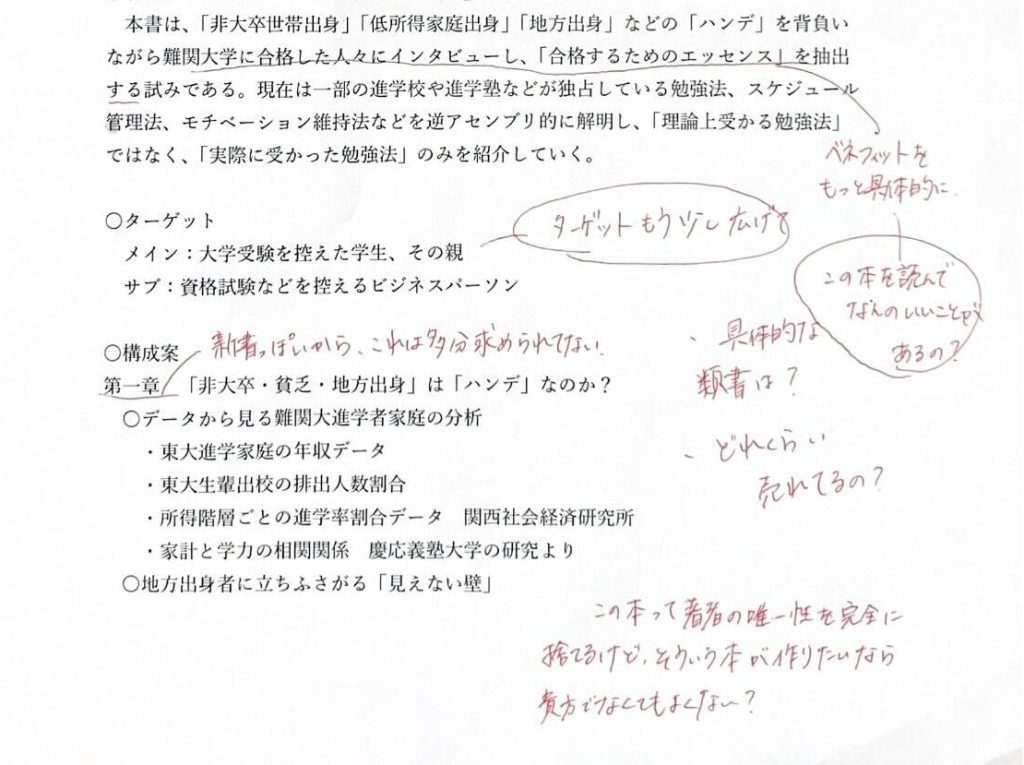 本書は、「非大卒世帯出身」「低所得家庭出身」「地方出身」などの「ハンデ」を背負い
ながら難関大学に合格した人々にインタビューし、「合格するためのエッセンス」を抽出
する試みである。現在は一部の進学校や進学塾などが独占している勉強法、スケジュール
管理法、モチベーション維持法などを逆アセンブリ的に解明し、「理論上受かる勉強法」
ではなく、「実際に受かった勉強法」のみを紹介していく。
ベネフィットを
もっと具体的に.
この本を読んで
なんのいいことが
あるの?
○ターゲット
ターゲットもう少し広げて
メイン:大学受験を控えた学生、その親
サブ:資格試験などを控えるビジネスパーソン
○構成案
新書っぽいから、これは多分求められてない.
第一章 「非大卒・貧乏・地方出身」は「ハンデ」なのか?
○データから見る難関大進学者家庭の分析
・東大進学家庭の年収データ
・東大生輩出校の排出人数割合
・所得階層ごとの進学率割合データ 関西社会経済研究所
・家計と学力の相関関係 慶応義塾大学の研究より
○地方出身者に立ちふさがる「見えない壁」
、具体的な
類書は?
、どれくらい
売れてるの?
この本って著者の唯一性を完全に
捨てるけど、そういう本が作りたいなら
貴方でなくてもよくない?